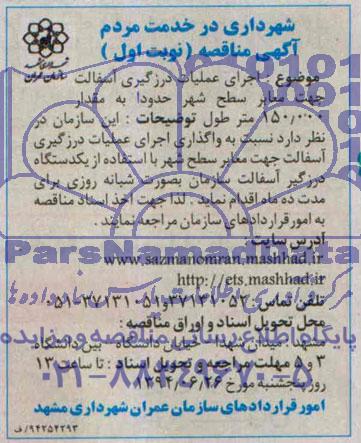 شهرداری در خدمت مردم
آگهی مناقصه ( نوبت اول )
سازمان عمران
موضوع : اجرای عملیات درزگیری آسفالت
جهت معابر سطح شهر حدودا به مقدار
۱۵۰/۰۰۰ متر طول توضیحات : این سازمان در
نظر دارد نسبت به واگذاری اجرای عملیات درزگیری
آسفالت جهت معابر سطح شهر با استفاده از یکدستگاه
درزگیر آسفالت سازمان بصورت شبانه روزی برای
مدت ده ماه اقدام نماید . لذا جهت اخذ اسناد مناقصه
به امور قراردادهای سازمان مراجعه نمایند .
آدرس سایت
www.sazmanomran.mashhad.ir
http://ets.mashhad.ir
تلفن تماس : ۰۵۱-۳۷۱۳۱۰۵۳ و ۰۵۱-۳۷۱۳۱۰
محل تحویل اسناد و اوراق مناقصه :
مشهد - میدان شهدا - خیابان دانشگاه - بین دانشگاه
۳ و ۵ مهلت مراجعه و تحویل اسناد : تا ساعت ۱۳
روز پنجشنبه مورخ ۱۳۹۴/۰۶/۲۶
امور قراردادهای سازمان عمران شهرداری مشهد
۹۴۲۵۴۲۹۳/ف
ParsNamadData
پایگاه اطلاع رسانی مناقصه و مزایده
۰۲۱-۸۸۳۴۹۶۷۰-۵